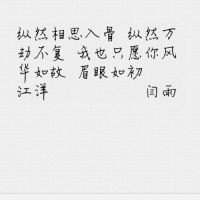 纵然相思入骨 纵然万
劫不复 我也只愿你风
华如故 眉眼如初
江洋 闫雨